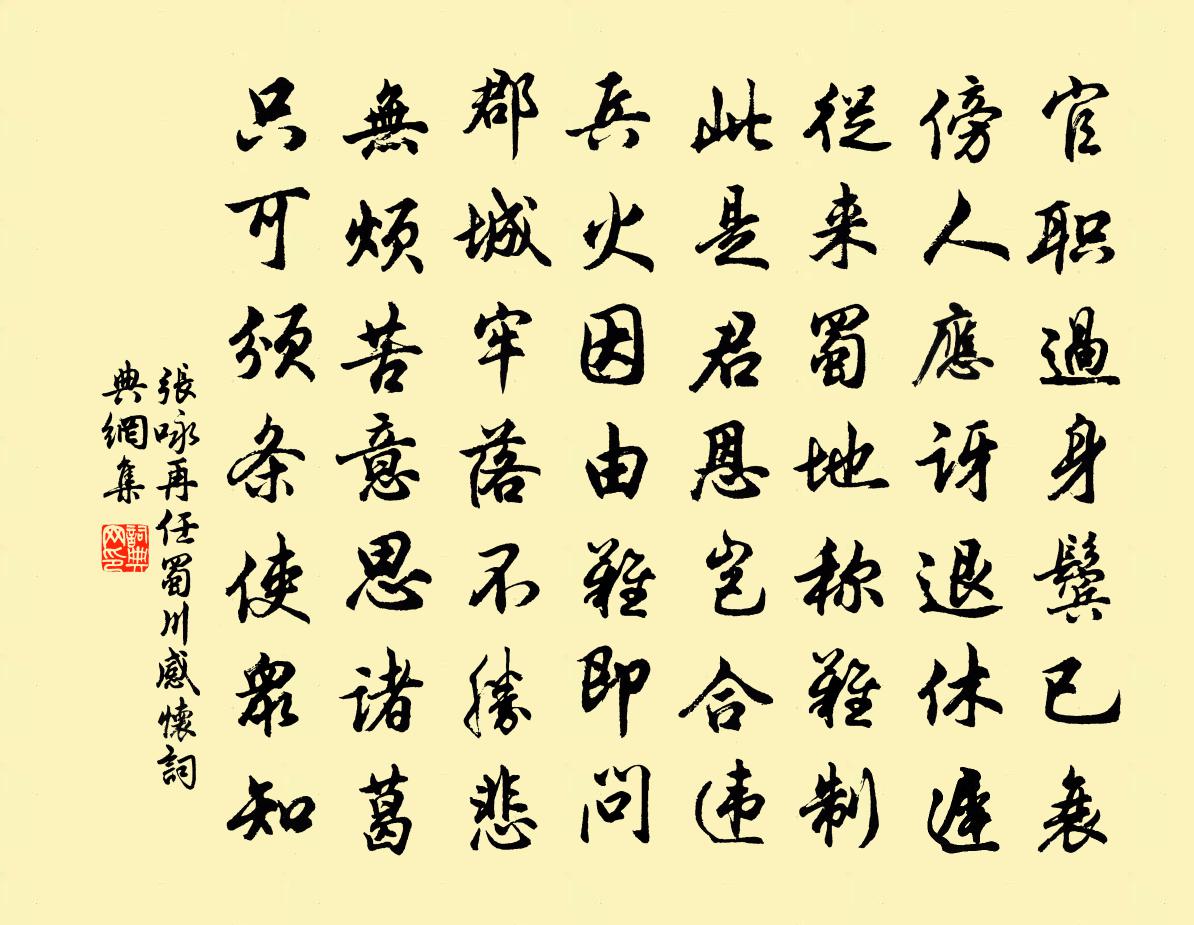 官职過身鬓已衰
傍人應讶退休遲
從来蜀地称難制
此是君恩岂合违
兵火因由難即问
郡城牢落不勝悲
無烦苦意思诸葛
只可须条使衆知
張咏再任蜀川感懷詞
典網集
詞典
网印